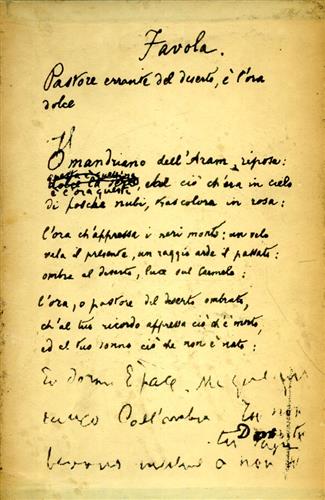 Favola.
Pastore errante del deserto, è l'ora
dolce
Il
O mandriano dell'Aram, riposa:
è l'ora questa
dolce la sera e ciò ch'era in cielo
di fosche nubi, trascolora in rosa:
l'ora ch'appressa i neri monti: un velo
vela il presente, un raggio arde il passato:
ombre al deserto, luce sul Carmelo:
l'ora, o pastore del deserto ombrato,
ch'al tuo ricordo appressa ciò ch'è morto,
ed al tuo sonno ciò che non è nato:
Tu dormi È pace.
Dall'ombra Tu non
Dormi
tu
a non